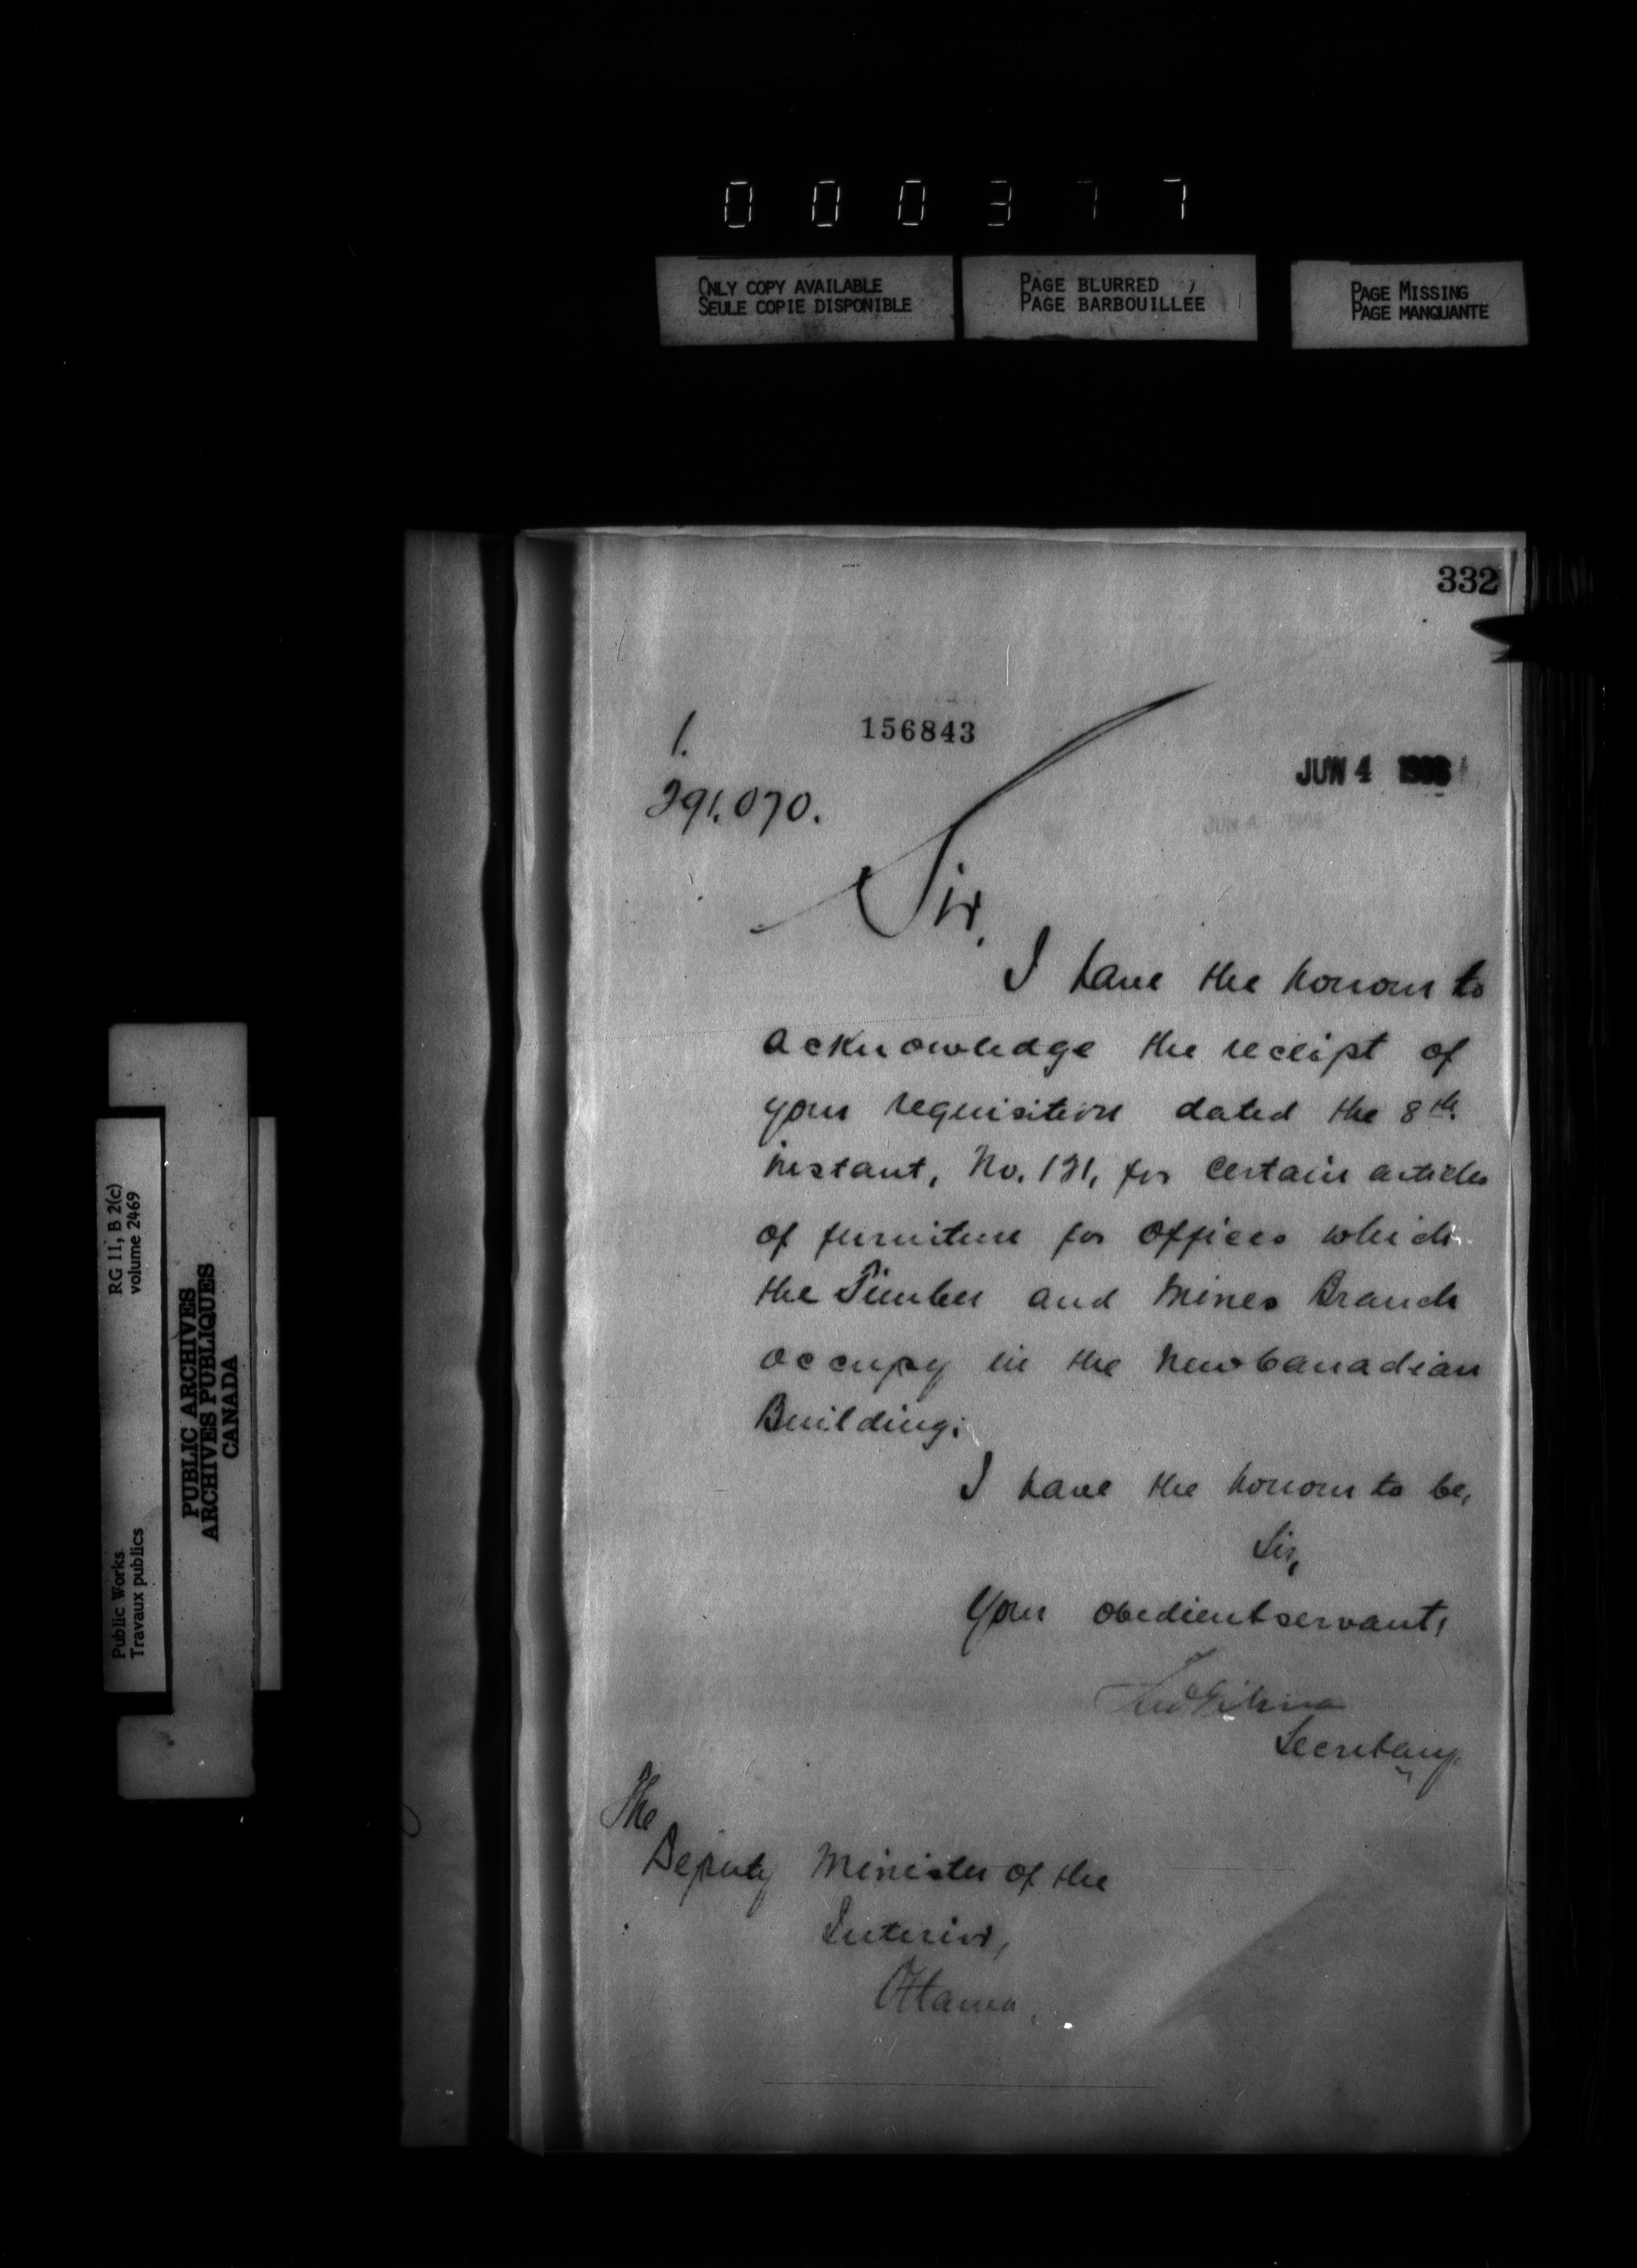 000377
ONLY COPY AVAILABLE
SEULE COPIE DISPONIBLE
PAGE BLURRED
PAGE BARBOUILLEE
PAGE MISSING
PAGE MANQUANTE
332
1.
156843
JUN 4
291.070.
Sir,
I have the honour to
acknowledge the receipt of
your requisition dated the 8th
instant, No. 121, for certain articles
of furniture for offices which
the Timber and Mines Branch
occupy in the New Canadian
Building.
I have the honour to be,
Sir,
Your obedient servant,
Secretary.
The
Deputy Minister of the
Interior,
Ottawa.
RG 11, B 2(c)
volume 2469
Public Works
Travaux publics
PUBLIC ARCHIVES
ARCHIVES PUBLIQUES
CANADA